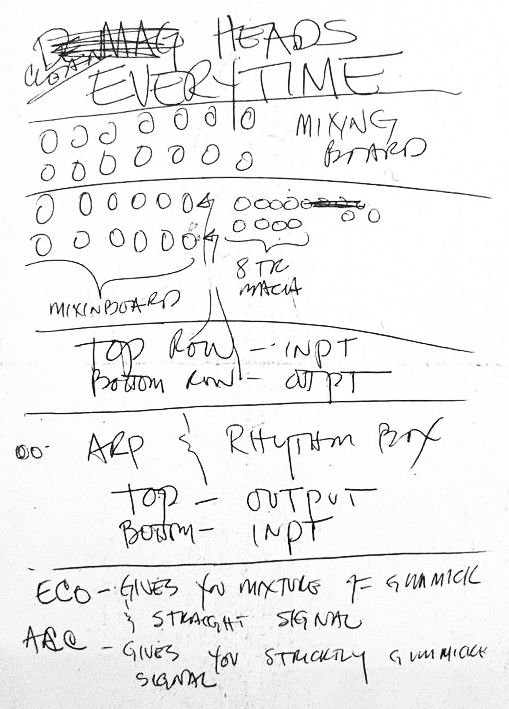 DEMAG HEADS
CLEAN
EVERYTIME
MIXING
BOARD
8 TR
MACH
MIXINBOARD
TOP ROW - INPT
BOTTOM ROW - OTPT
ARP & RHYTHM BOX
TOP - OUTPUT
BOTTOM - INPT
ECO - GIVES YOU MIXTURE OF GIMMICK
& STRAIGHT SIGNAL
- GIVES YOU STRICKTLY GIMMICK
SIGNAL